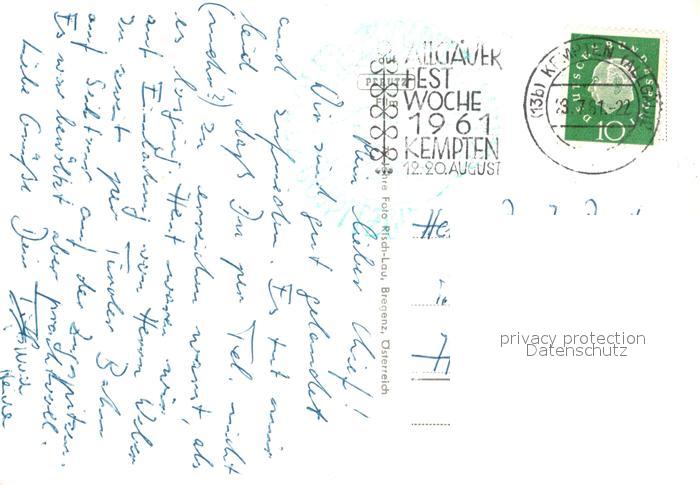 ALLGÄUER
FEST
WOCHE
1961
KEMPTEN
12.-20. AUGUST
PERUTZ
(13b) KEMPTEN (ALLGÄU)
-7.61-22
DEUTSCHE BUNDESPOST
10
Foto Risch-Lau, Bregenz, Österreich
Mein lieber Chief!
Wir sind gut gelandet
und zufrieden. Es tut mir
leid, daß Du per Tel. nicht
zu erreichen warst, als
es losging. Heut waren wir
auf Einladung von Herrn Weber
zu zweit per Tiroler Bahn
auf Seiltour auf der Zugspitze.
Es war bewölkt aber prachtvoll.
Liebe Grüße Dein
He
H
privacy protection
Datenschutz